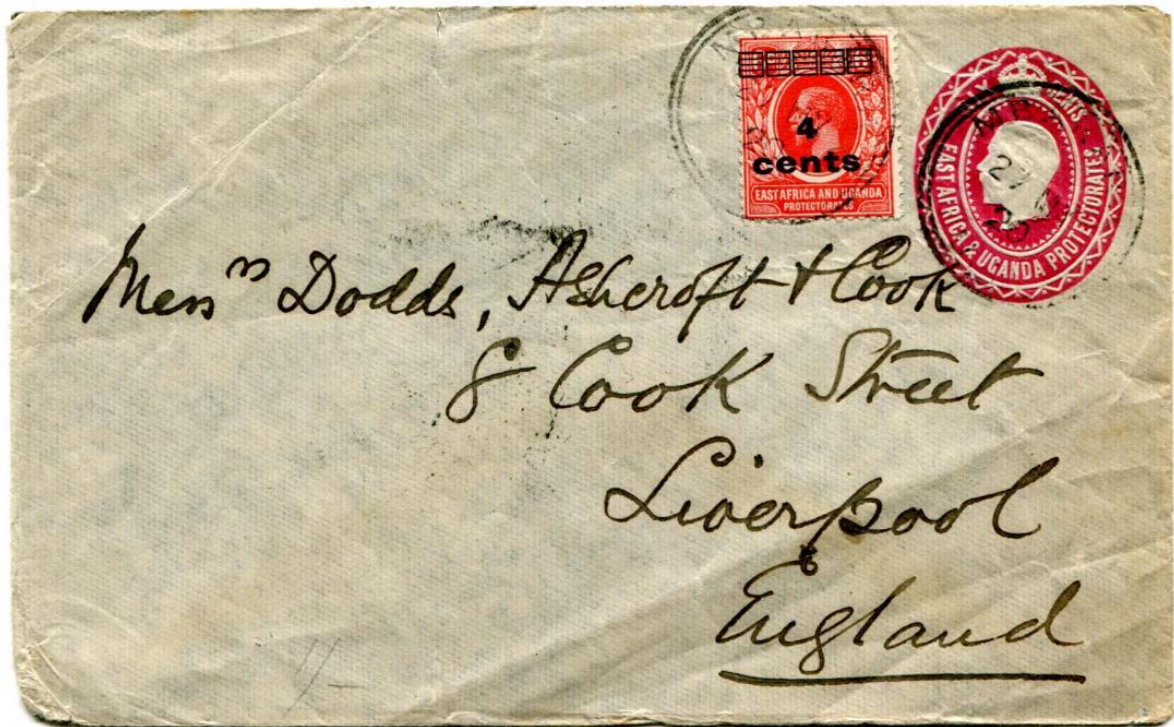 4
cents
EAST AFRICA AND UGANDA
PROTECTORATES
CENTS
EAST AFRICA & UGANDA PROTECTORATES
27
Messrs Dodds, Ashcroft & Cook
8 Cook Street
Liverpool
England